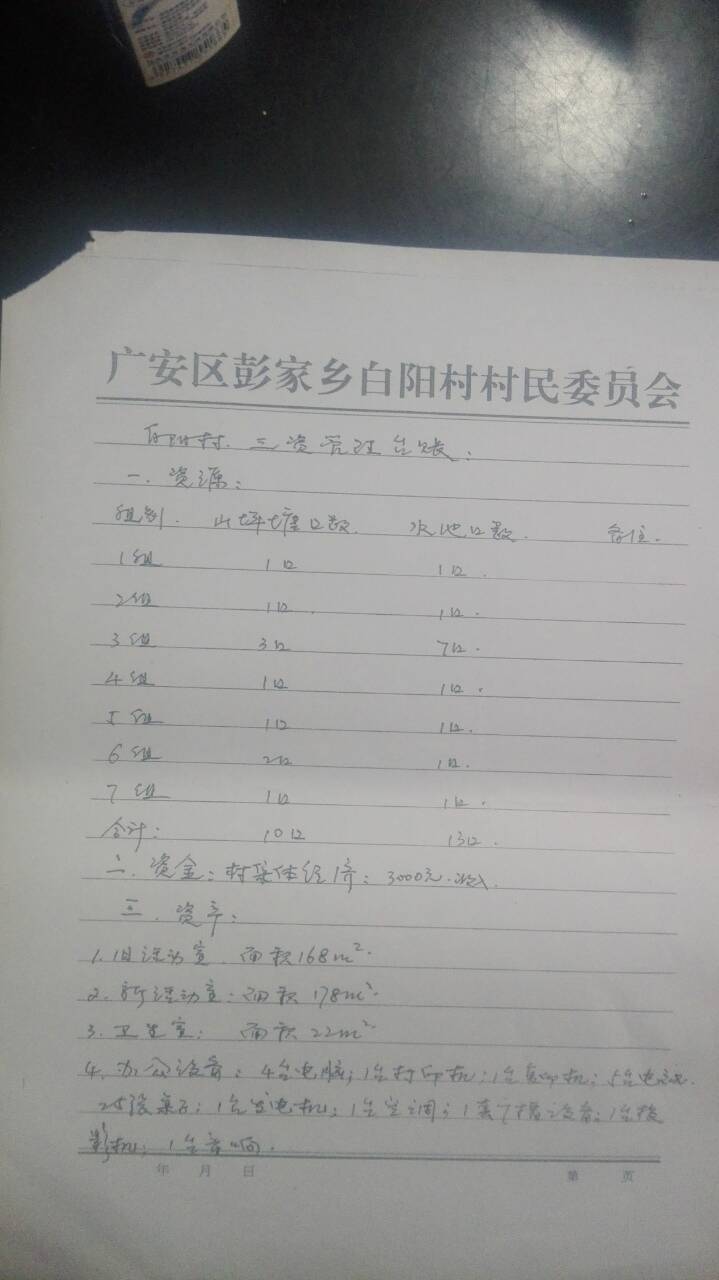 广安区彭家乡白阳村村民委员会
白阳村三资管理台账:
一. 资源:
组别. 山坪塘口数. 水池口数. 备注.
1组 1口 1口.
2组 1口. 1口.
3组 3口 7口.
4组 1口 1口.
5组 1口 1口.
6组 2口 1口.
7组 1口 1口.
合计: 10口 13口.
二. 资金: 村集体经济: 3000元.
三. 资产:
1. 旧活动室. 面积168m².
2. 新活动室: 面积 178m².
3. 卫生室: 面积 22m².
4. 办公设备: 4台电脑; 1台打印机; 1台复印机; 5台电
25张桌子; 1台发电机; 1台空调; 1套广播设备; 1台投
影机; 1台音响.
年 月 日 第 页